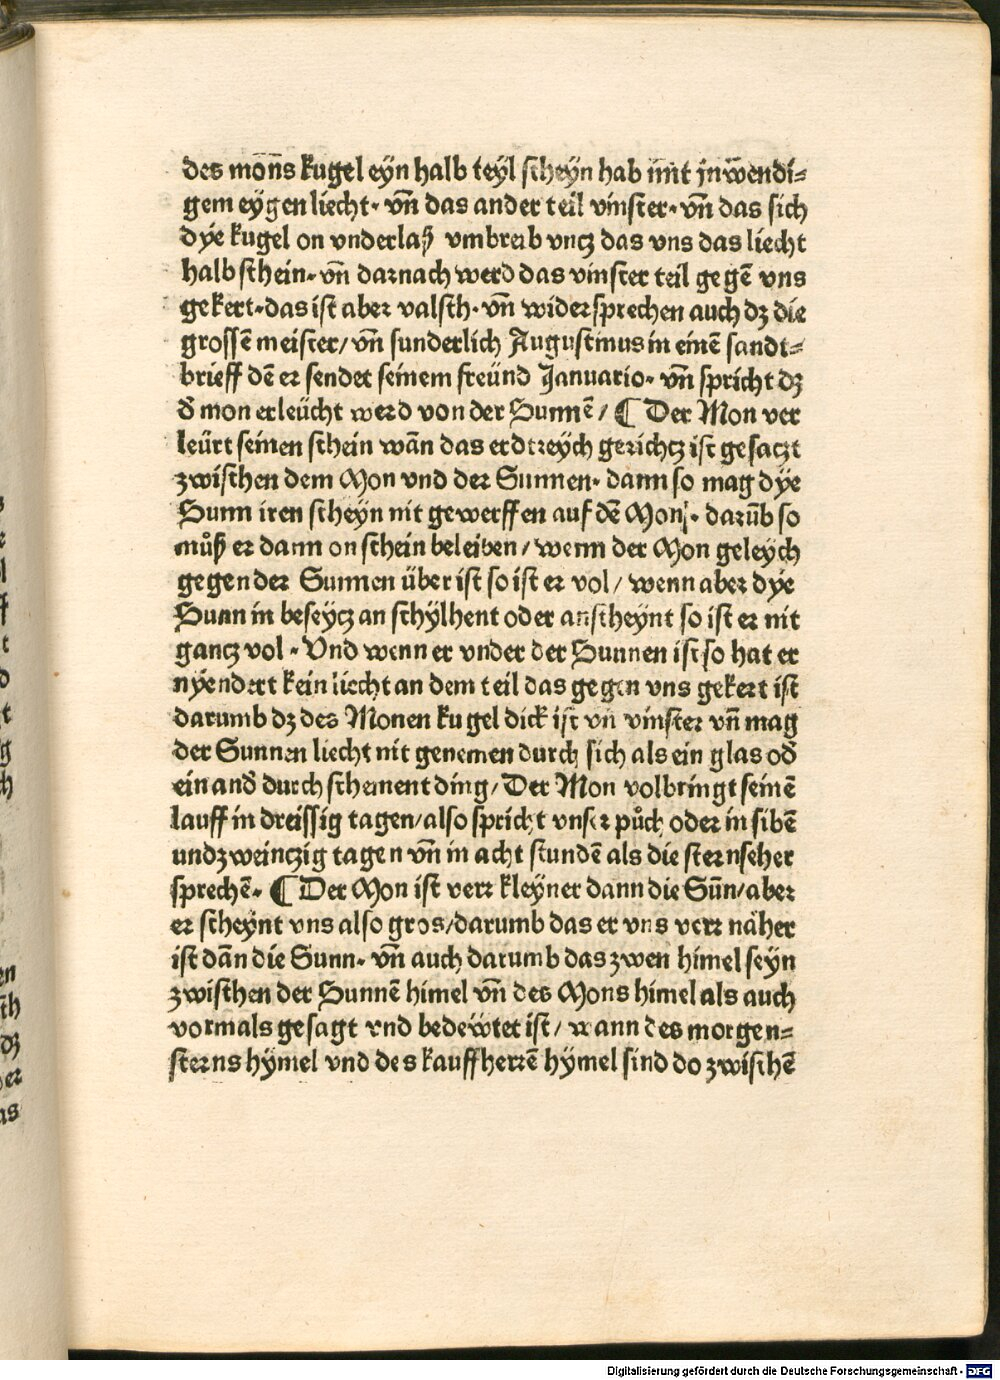 des mōns kugel eyn halb teyl scheyn hab mit inwēndi⸗
gem eygen liecht· vn̄ das ander teil vinster· vn̄ das sich
dye kugel on vnderlaß vmbreib vncz das vns das liecht
halb schein· vn̄ darnach werd das vinster teil gegē vns
gekert· das ist aber valsch· vn̄ widersprechen auch dz die
grossē meister/ vn̄ sunderlich Augustinus in einē sandt⸗
brieff dē er sendet seinem freünd Januario· vn̄ spricht dz
d̄ mon erleücht werd von der Sunnē/ ¶ Der Mon ver
leürt seinen schein wān das erdtreych gerichcz ist gesaczt
zwischen dem Mon vnd der Sunnen· dann so mag dye
Sunn iren scheyn nit gewerffen auf dē Mon· darūb so
můß er dann on schein beleiben/ wenn der Mon geleych
gegen der Sunnen über ist so ist er vol/ wenn aber dye
Sunn in beseycz an schylhent oder anscheynt so ist er nit
gancz vol· Vnd wenn er vnder der Sunnen ist so hat er
nyendert kein liecht an dem teil das gegen vns gekert ist
darumb dz des Monen kugel dick ist vn̄ vinster vn̄ mag
der Sunnen liecht nit genemen durch sich als ein glas od̄
ein and̄ durch scheinent ding/ Der Mon volbringt seinē
lauff in dreissig tagen/ also spricht vnser půch oder in sibē
vndzweinczig tagen vn̄ in acht stundē als die sternseher
sprechē· ¶ Der Mon ist verr kleyner dann die Sūn/ aber
er scheynt vns also gros/ darumb das er vns verr näher
ist dān die Sunn· vn̄ auch darumb das zwen himel seyn
zwischen der Sunnē himel vn̄ des Mons himel als auch
vormals gesagt vnd bedeẅtet ist/ wann des morgen⸗
sterns hymel vnd des kauffherrē hymel sind do zwischē
Digitalisierung gefördert durch die Deutsche Forschungsgemeinschaft - DFG